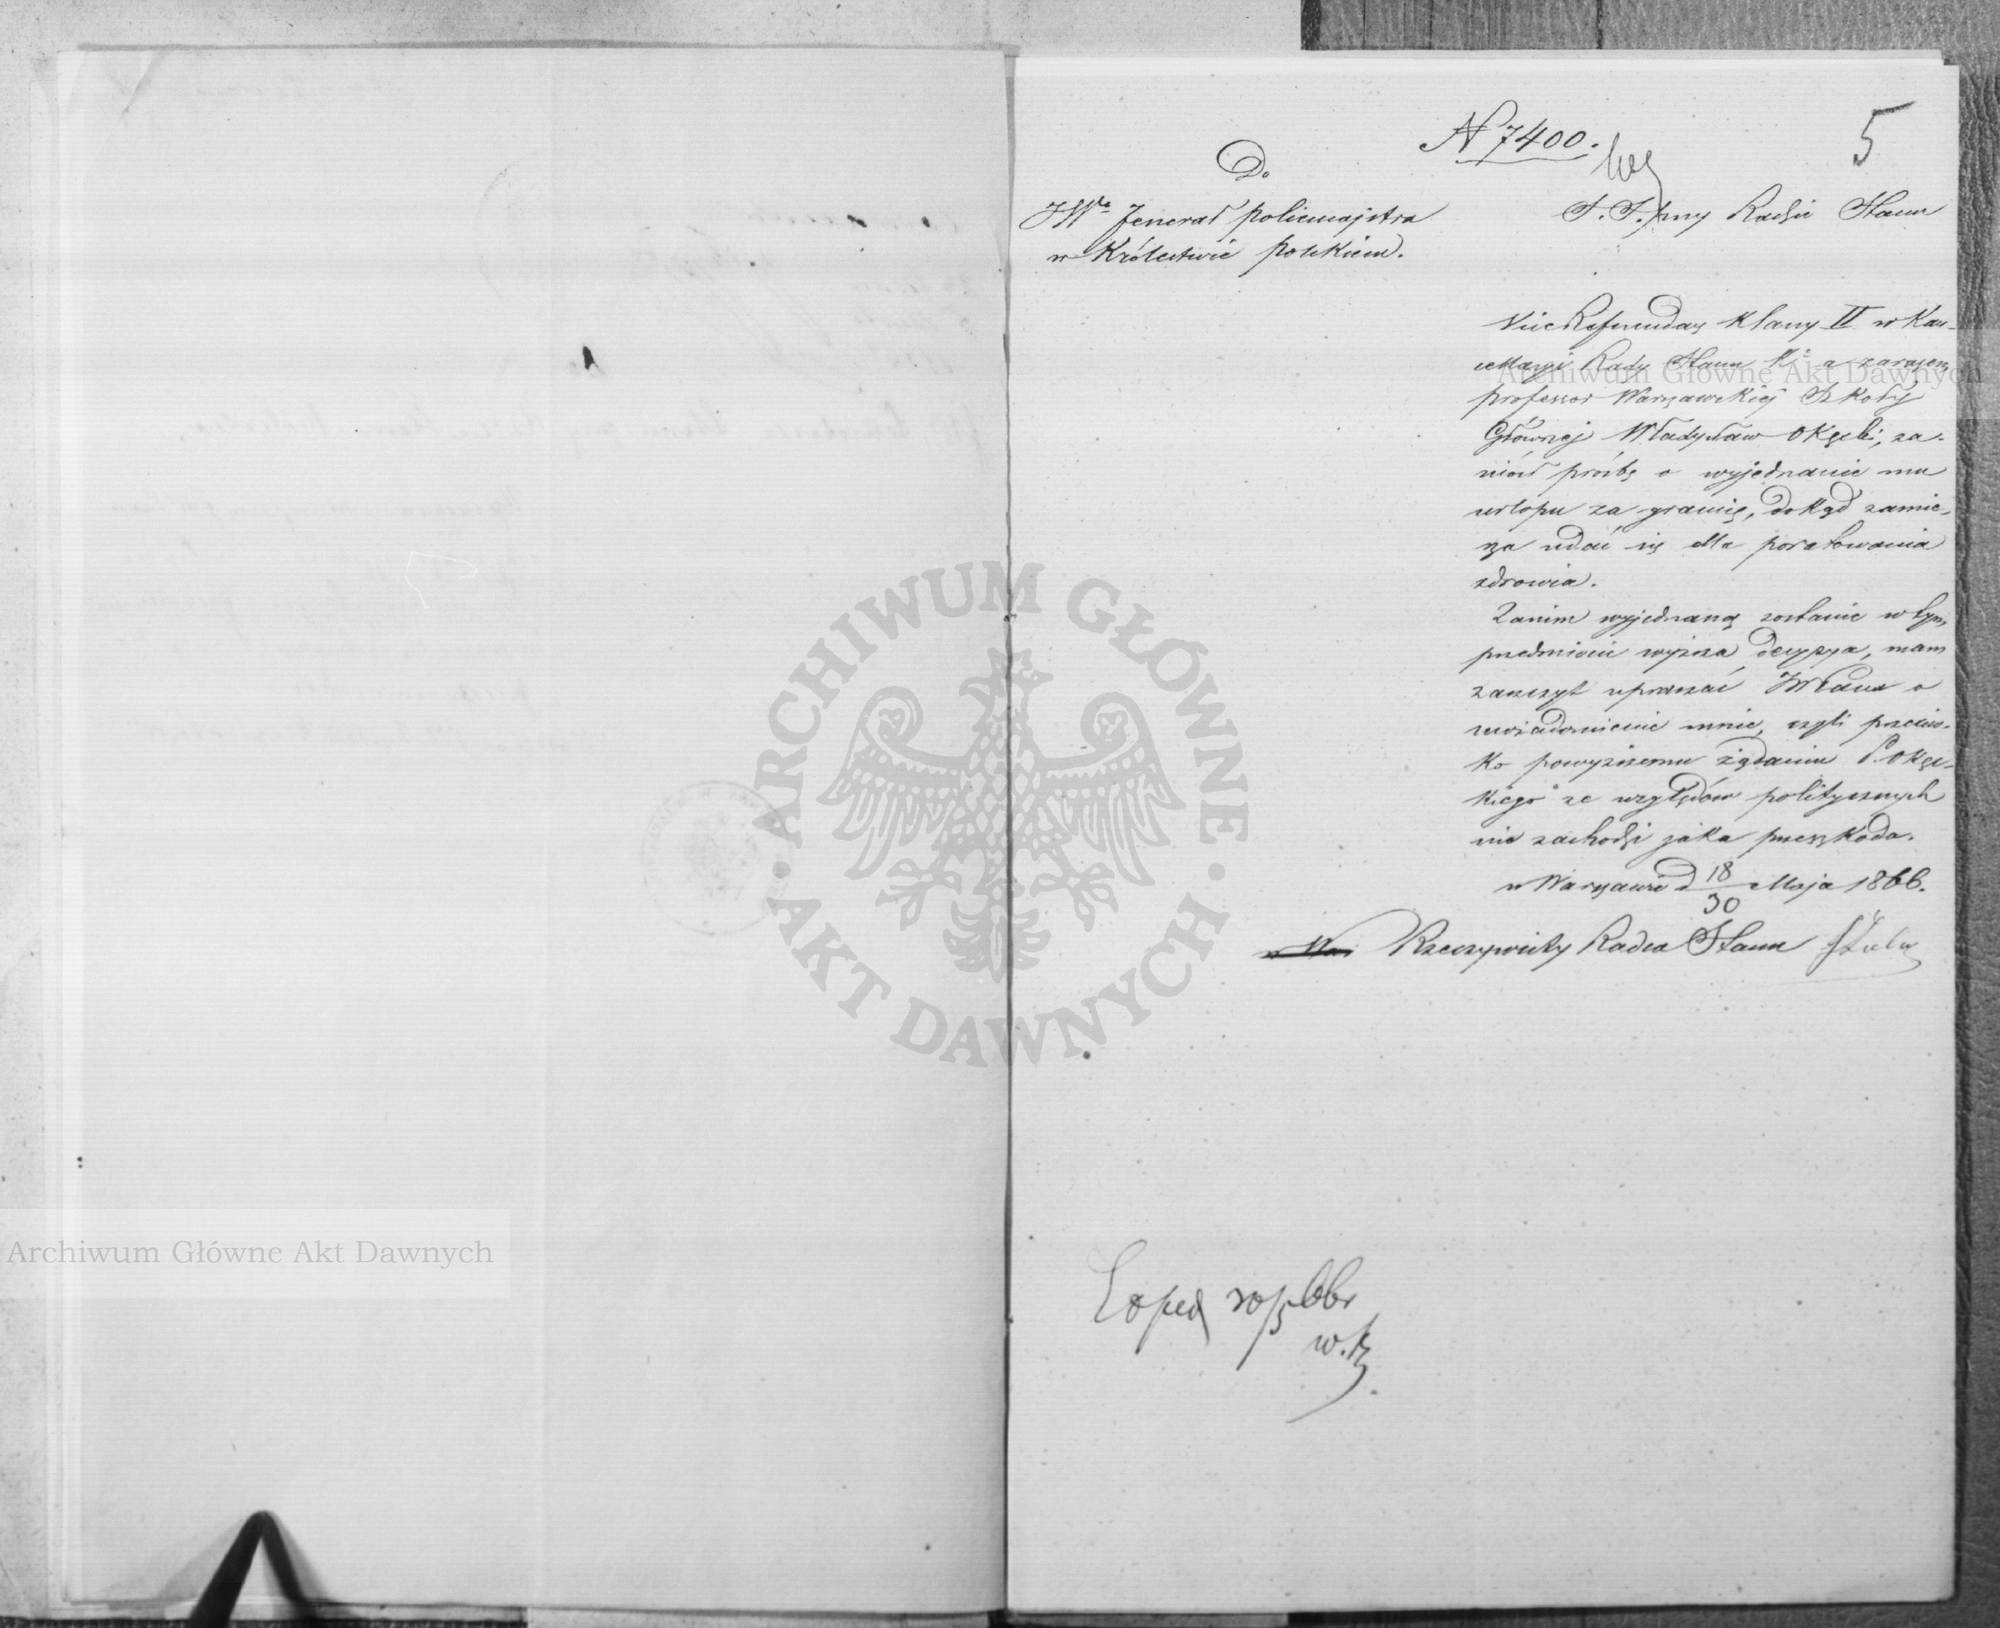 N 7400.
5
D.
JW^o Jenerał policmajstra
w Królestwie polskiem.
S. S. przy Radzie Stanu
Vice Referendarz klassy II w Kan-
cellaryi Rady Stanu a zarazem
professor Warszawskiej Szkoły
Głównej Władysław Okęcki, za-
niósł prośbę o wyjednanie mu
urlopu za granicę, dokąd zamie-
rza udać się dla poratowania
zdrowia.
Zanim wyjednaną zostanie w tym
przedmiocie wyższa decyzya, mam
zaszczyt upraszać JWPana o
uwiadomienie mnie, czyli przeciw-
ko powyższemu żądaniu P. Okęc-
kiego ze względów politycznych
nie zachodzi jaka przeszkoda.
w Warszawie d 18/30 Maja 1866.
Rzeczywisty Radca Stanu
Archiwum Główne Akt Dawnych
ARCHIWUM GŁÓWNE
· AKT DAWNYCH ·
Archiwum Główne Akt Dawnych